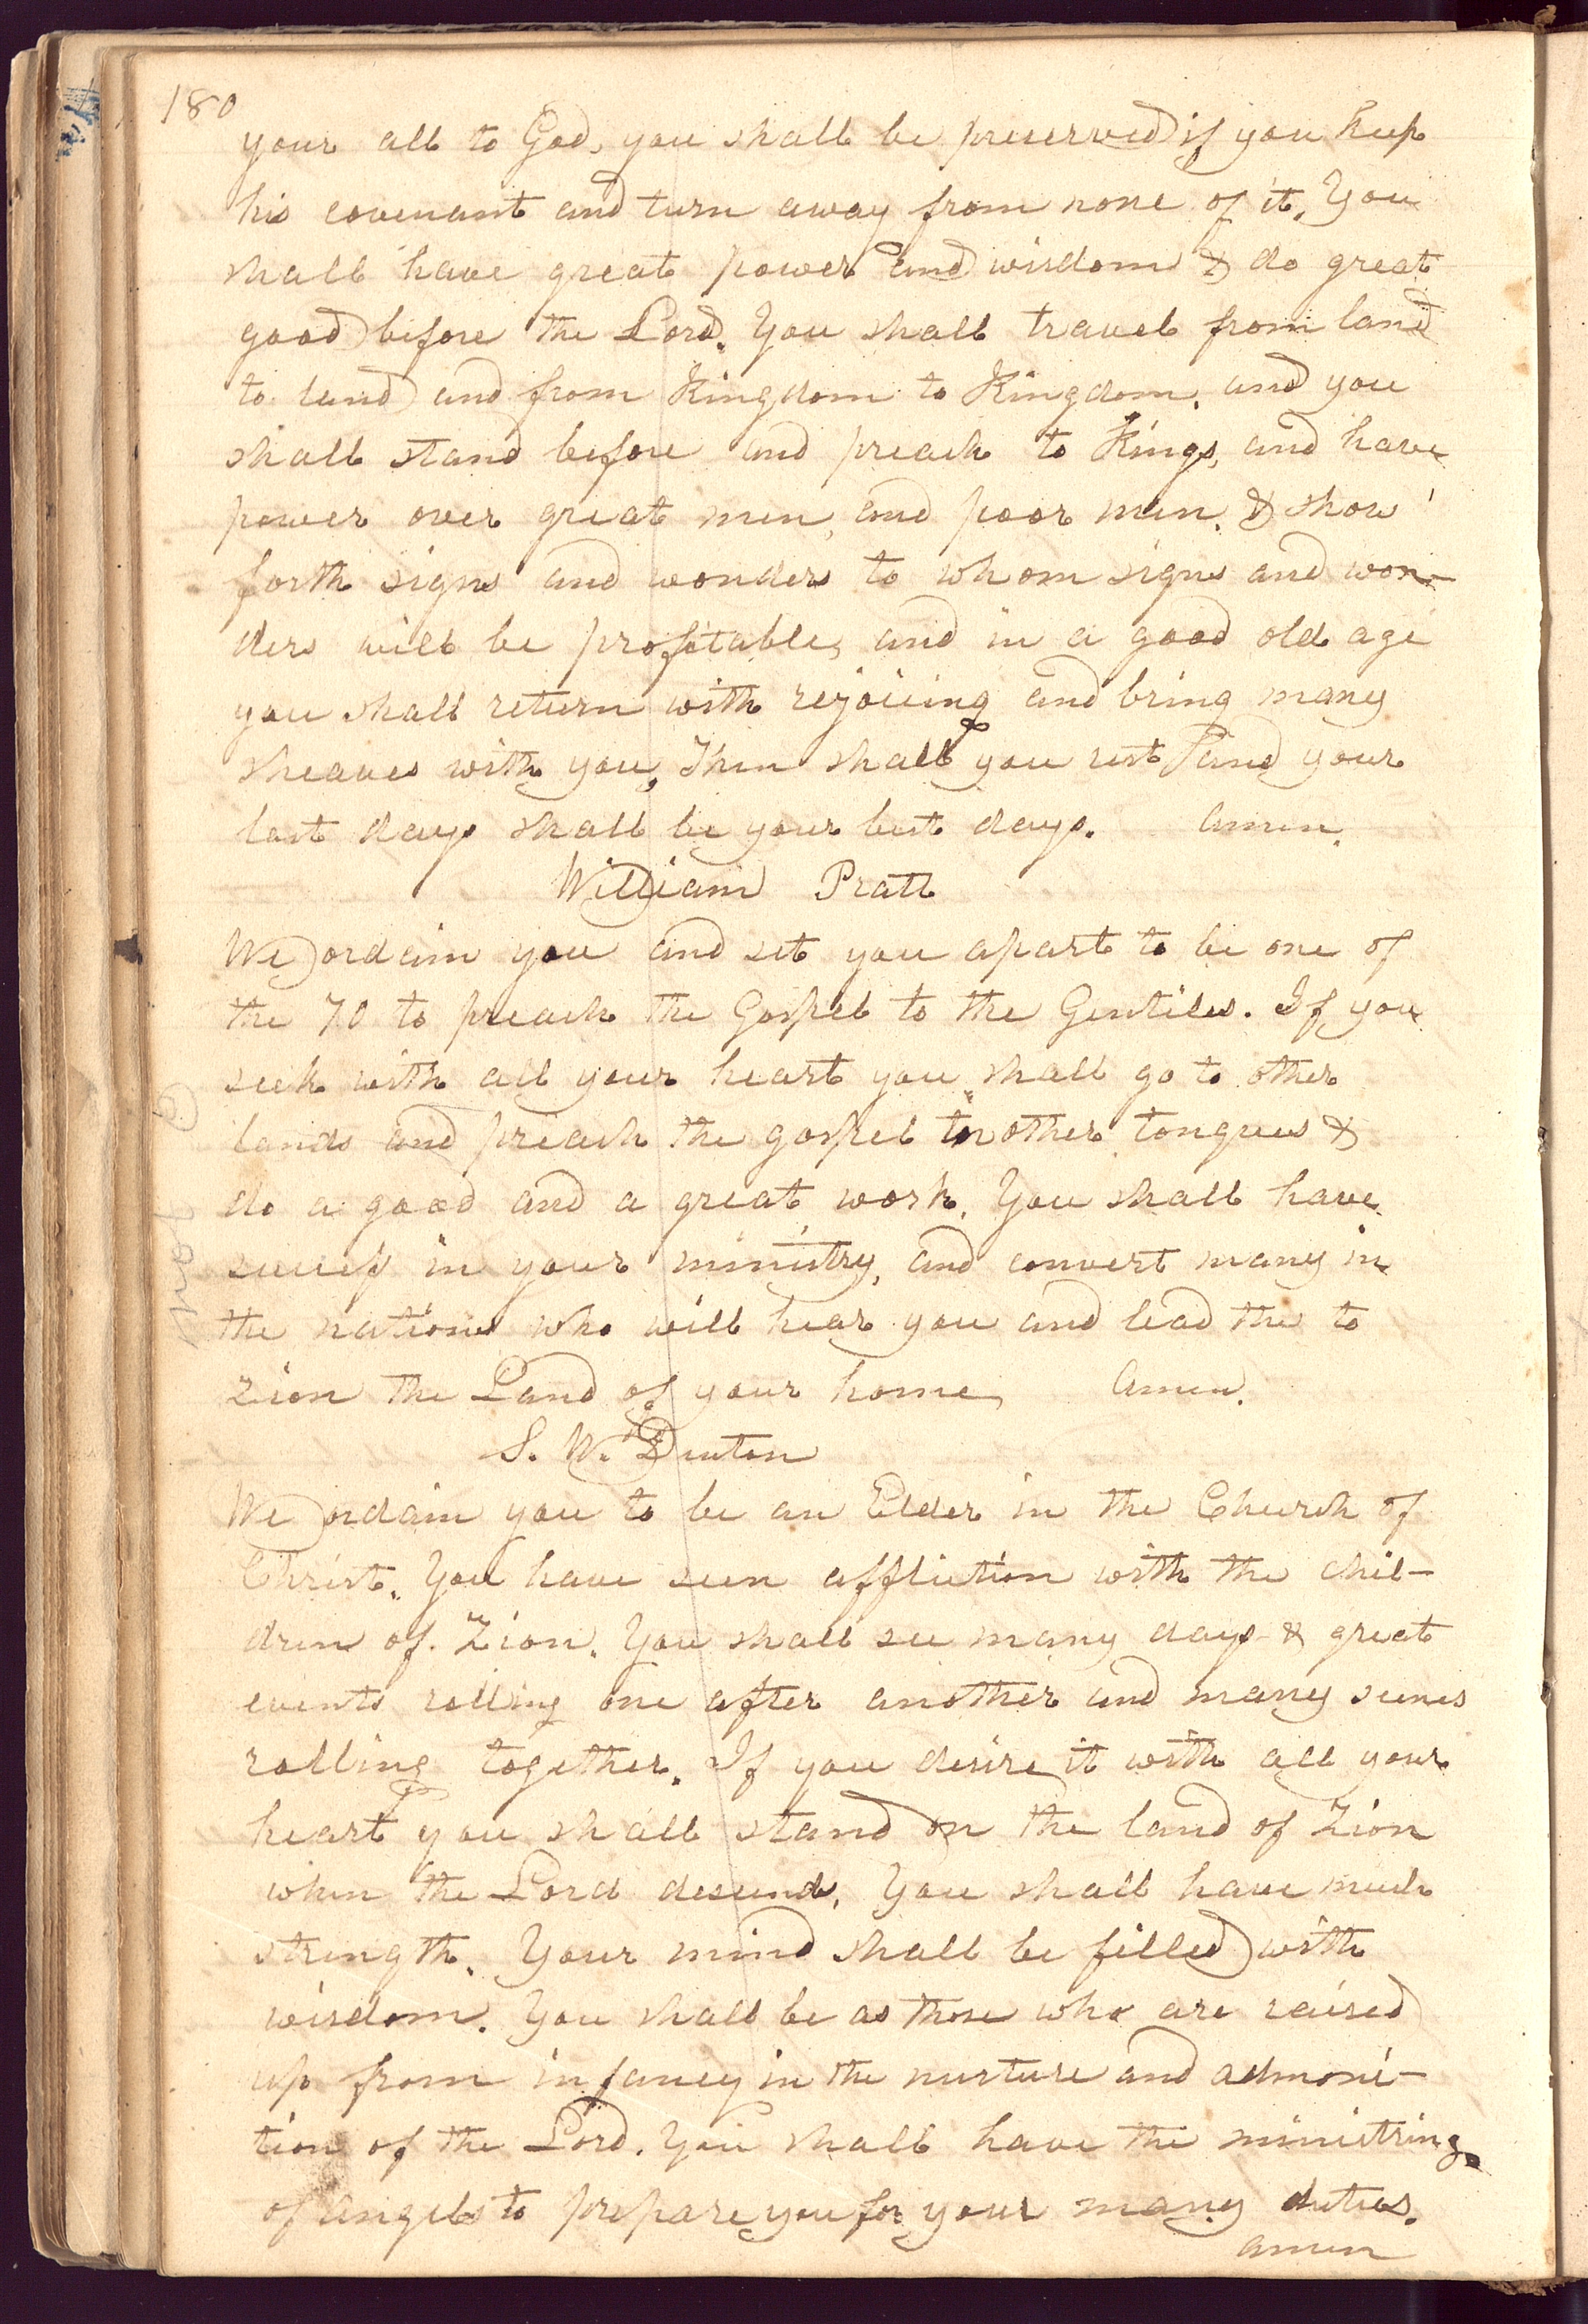 180
your all to God, you shall be preserved if you keep
his covenant and turn away from none of it. You
shall have great power and wisdom & do great
good before the Lord. You shall travel from land
to land and from Kingdom to Kingdom, and you
shall stand before and preach to Kings, and have
power over great men, and poor men, & show
forth signs and wonders to whom signs and won-
ders will be profitable, and in a good old age
you shall return with rejoicing and bring many
sheaves with you, Then shall you rest and your
last days shall be your best days. Amen.
William Pratt
We ordain you and set you apart to be one of
the 70 to preach the Gospel to the Gentiles. If you
seek with all your heart you shall go to other
lands and preach the gospel in other tongues &
do a good and a great work. You shall have
success in your ministry, and convert many in
the nations who will hear you and lead the to
Zion the Land of your home, Amen.
S. W. Denton
We ordain you to be an Elder in the Church of
Christ. You have seen affliction with the chil-
dren of. Zion. You shall see many days & great
events rolling one after another and many scenes
rolling together. If you desire it with all your
heart you shall stand on the land of Zion
when the Lord descends, You shall have much
strength. Your mind shall be filled with
wisdom. You shall be as those who are raised
up from infancy in the nurture and admoni-
tion of the Lord. You shall have the ministring
of angels to prepare you for your many duties.
amen